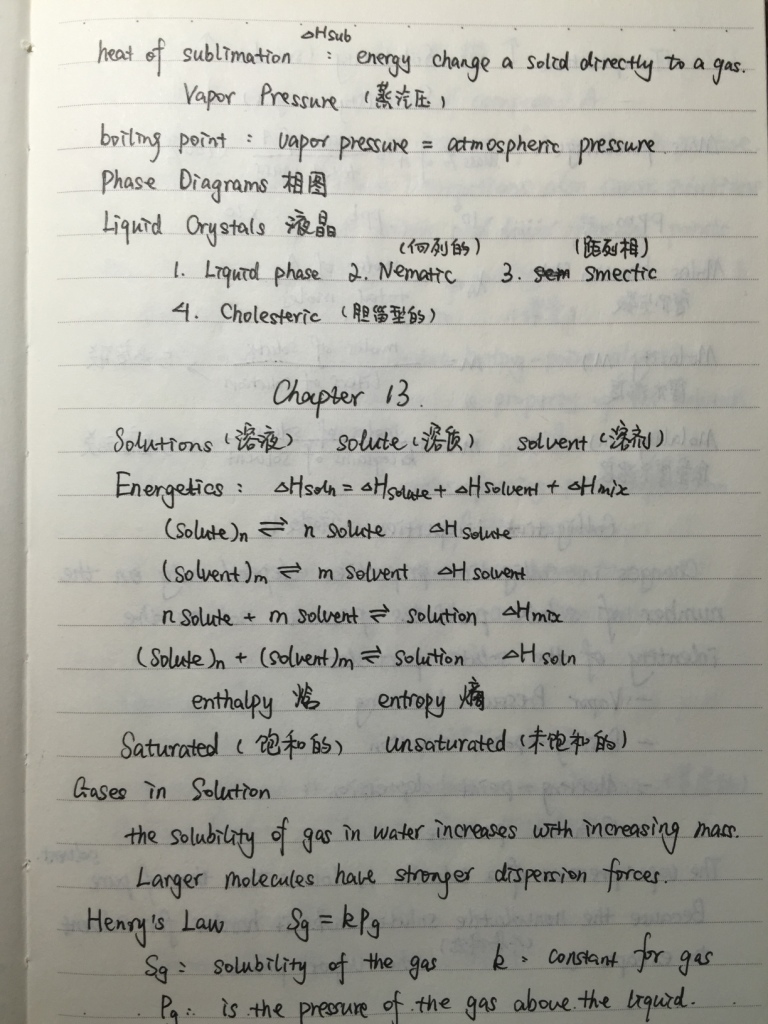 heat of sublimation ΔHsub : energy change a solid directly to a gas.
Vapor Pressure (蒸汽压)
boiling point : vapor pressure = atmospheric pressure
Phase Diagrams 相图
Liquid Crystals 液晶
(向列的) (距列相)
1. Liquid phase 2. Nematic 3. Smectic
4. Cholesteric (胆甾型的)
Chapter 13.
Solutions (溶液) solute (溶质) solvent (溶剂)
Energetics : ΔHsoln = ΔHsolute + ΔHsolvent + ΔHmix
(solute)n ⇌ n solute ΔHsolute
(solvent)m ⇌ m solvent ΔHsolvent
n solute + m solvent ⇌ solution ΔHmix
(Solute)n + (solvent)m ⇌ solution ΔHsoln
enthalpy 焓 entropy 熵
Saturated (饱和的) unsaturated (未饱和的)
Gases in Solution
the solubility of gas in water increases with increasing mass.
Larger molecules have stronger dispersion forces.
Henry's Law Sg = kPg
Sg : solubility of the gas k : constant for gas
Pg : is the pressure of the gas above the liquid.